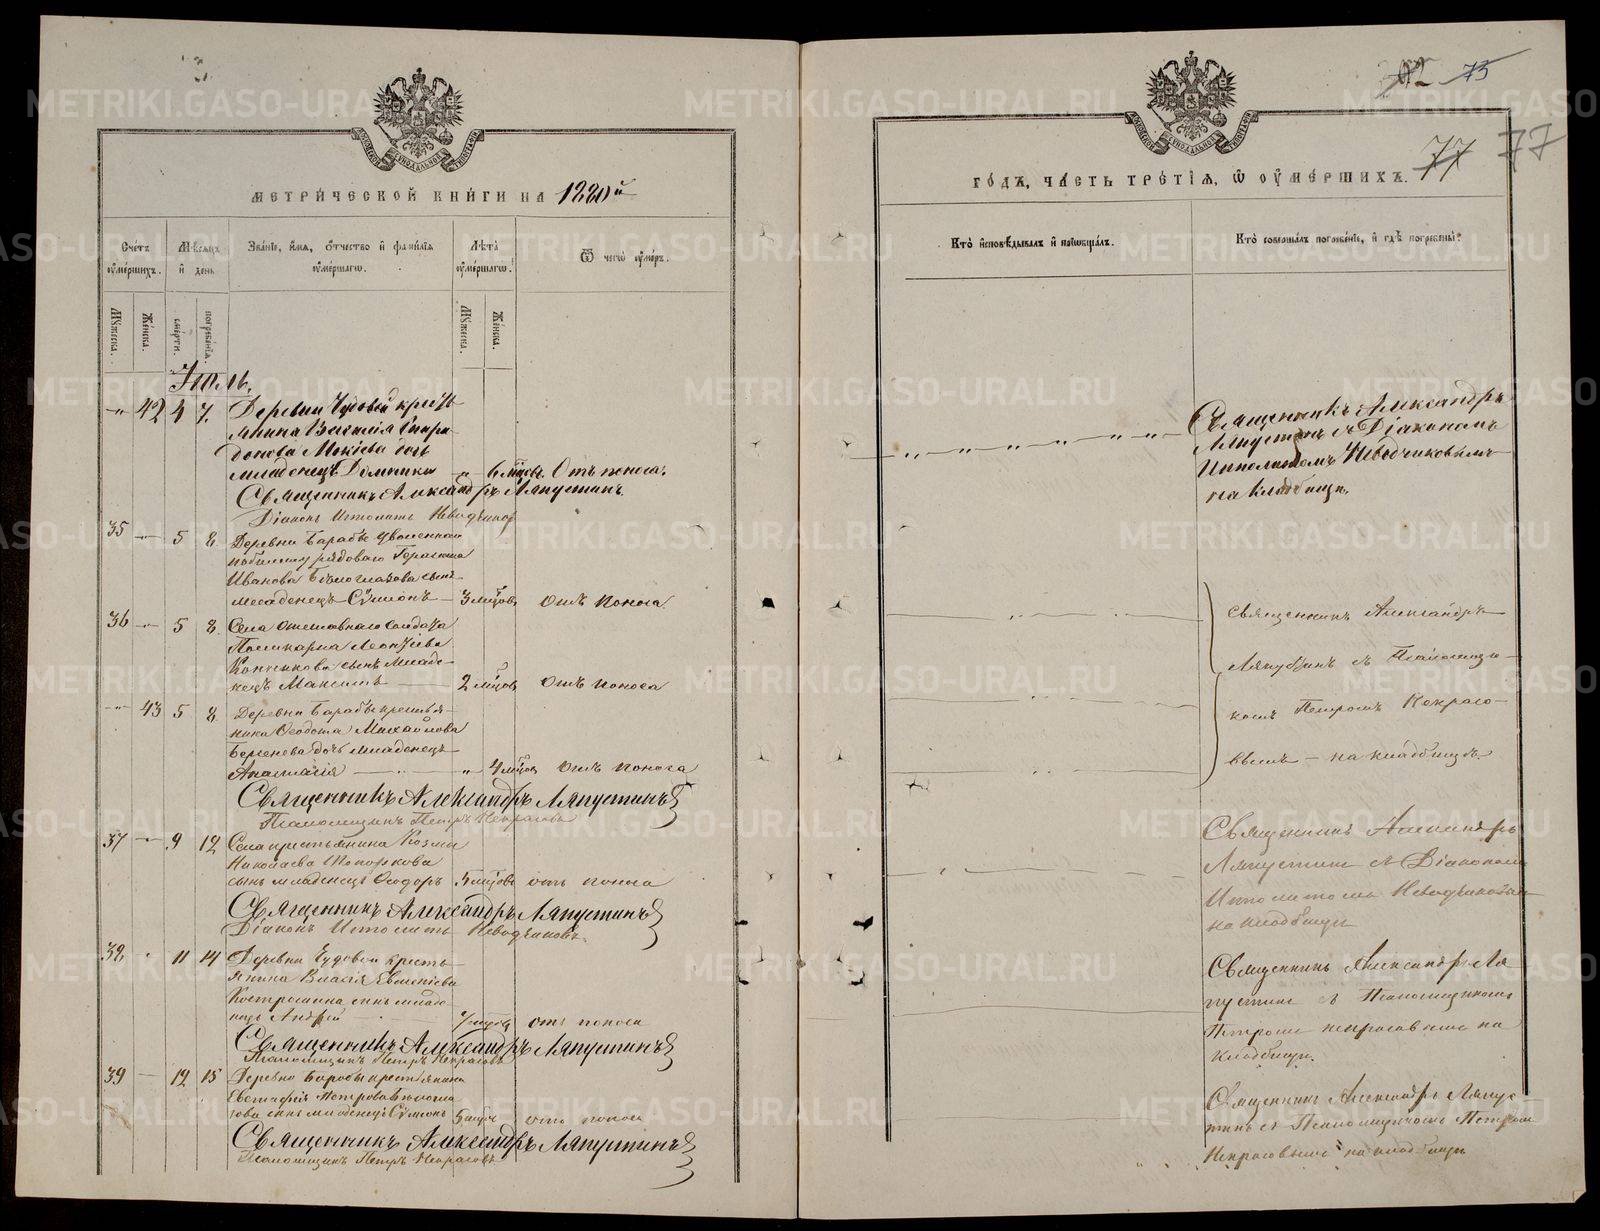 МЕТРИЧЕСКОЙ КНИГИ НА 1880й
Счетъ умершихъ.
Мѣсяцъ и день
Званіе, имя, отчество и фамилія умершаго.
Лѣта умершаго.
Ѿ чегѡ умеръ.
Мужеска.
Женска.
смерти.
погребенія.
Мужеска.
Женска.
Іюль.
42 4 7. Деревни Чудовой кресть
янина Василія Спири
донова Мокіева дочь
младенецъ Домника 6 мцов. Отъ поноса.
Священникъ Александръ Ляпустинъ
Діаконъ Ипполитъ Неводчиков
35 5 8 Деревни Барабы уволеннаго
рядоваго Герасима
Иванова Бѣлоглазова сынъ
младенецъ Сѵмеонъ 3 мцов отъ поноса
36 5 8 Села отставнаго солдата
Поликарпа Леонтіева
сынъ младе
нецъ Максимъ 2 мцов отъ поноса
43 5 8 Деревни Барабы крестья
нина Ѳеодота Михайлова
дочь младенецъ
Анастасія 4 мцов отъ поноса
Священникъ Александръ Ляпустинъ
Псаломщикъ Петръ Некрасовъ
37 9 12 Села крестьянина Козмы
Николаева Топоркова
сынъ младенецъ Ѳеодоръ 5 мцов отъ поноса
Священникъ Александръ Ляпустинъ
Діаконъ Ипполитъ Неводчиковъ.
38 11 14 Деревни Чудовой кресть
янина Власія Евсевіева
Костромина сынъ младе
нецъ Андрей отъ поноса
Священникъ Александръ Ляпустинъ
Псаломщикъ Петръ Некрасовъ
39 12 15 Деревни Барабы крестьянина
Евстафія Петрова Бѣлогла
зова сынъ младенецъ Сѵмеонъ отъ поноса
Священникъ Александръ Ляпустинъ
Псаломщикъ Петръ Некрасовъ
75
77 77
ГОДЪ, ЧАСТЬ ТРЕТІЯ, Ѡ УМЕРШИХЪ.
Кто исповѣдывалъ и пріобщалъ.
Кто совершалъ погребеніе, и гдѣ погребены.
Священникъ Александръ
Ляпустинъ съ Діакономъ
Ипполитомъ Неводчиковымъ
на кладбищѣ.
Священникъ Александръ
Ляпустинъ съ Псаломщи
комъ Петромъ Некрасо
вымъ на кладбищѣ.
Священникъ Александръ
Ляпустинъ съ Діакономъ
Ипполитомъ Неводчиковымъ
на кладбищѣ
Священникъ Александръ Ля
пустинъ съ Псаломщикомъ
Петромъ Некрасовымъ на
кладбищѣ.
Священникъ Александръ Ляпус
тинъ съ Псаломщикомъ Петромъ
Некрасовымъ на кладбищѣ
METRIKI.GASO-URAL.RU